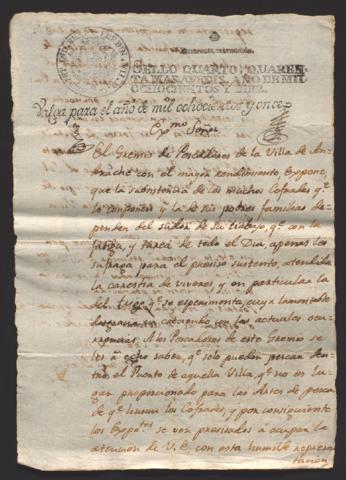 SELLO QUARTO, QUAREN
TA MARAVEDIS, AÑO DE MIL
OCHOCIENTOS Y DIEZ.
Valga para el año de mil ochocientos y once
Exmo Señor
El Gremio de Pescadores de la Villa de
con el mayor rendimiento Expone,
que la subsistencia de los muchos Cofrades qe
lo componen y la de sus pobres familias de
penden del sudor de su trabajo, qe con la
fatiga, y tarea de todo el Dia, apenas les
sufraga para el preciso sustento, atendida
la carestia de viveres, y en particular la
del trigo qe se experimenta, cuya lamentable
en las actuales ocu
rrencias. A los Pescadores de este Gremio se
les á echo saber, qe solo pueden pescar den
tro el Puerto de aquella Villa, qe no es Lu
gar proporcionado para las Artes de pesca
de qe husan los Cofrades, y por consiguiente
los Exptes se ven precisados á ocupar la
atencion de V. E. con esta humilde represen
tacion